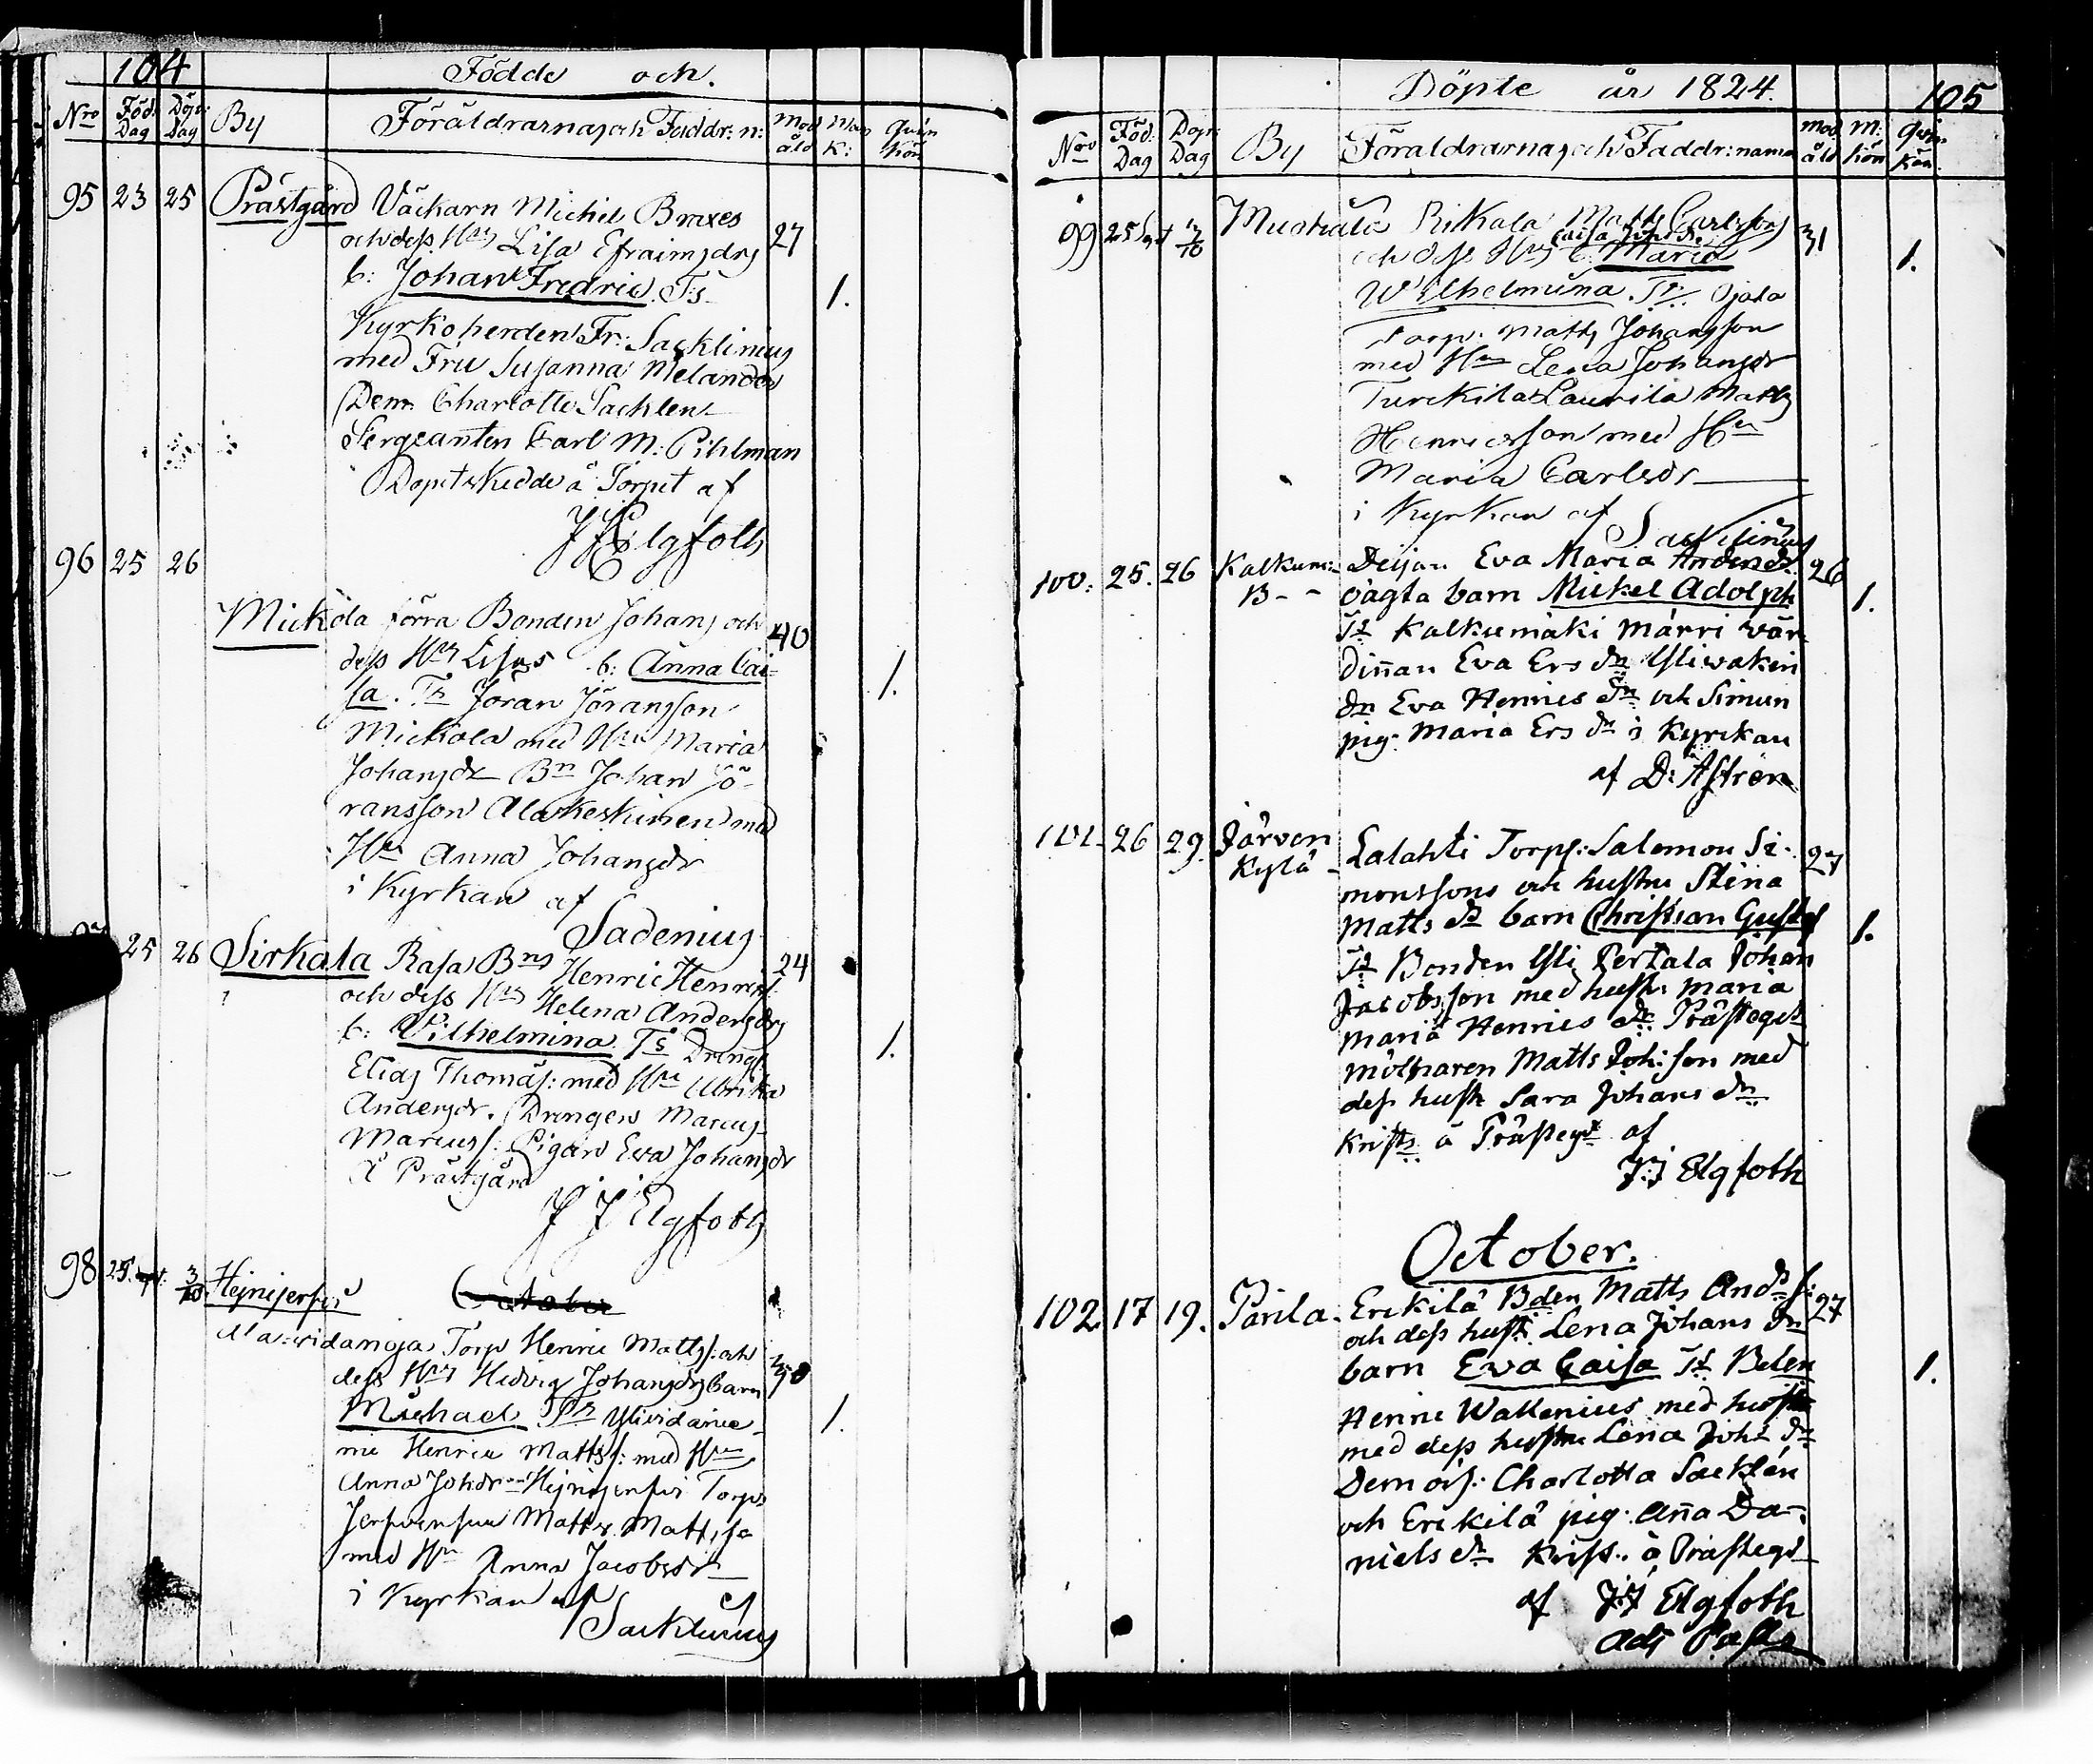 104
Födde och.
Nro Föd: Dag Döp: Dag By Föräldrarnas och Faddr: n: Mod åld Man K: Qvin Kön
95 23 25 Prästgård Väckarn Michel Braxes 27
och dess Hus Lisa Efraimsdrs
b: Johan Fredric. Ts 1.
Kyrkoherden Fr: Sacklinius
med Fru Susanna Melander
Dem. Charlotte Sacklen
Sergeanten Carl M: Pihlman
Dopet skedde å Torpet af
J J Elgfoth
96 25 26
Mickola förra Bonden Johans och 40
dess Hus Lisas b: Anna Cai-
sa. Ts Jöran Jöransson 1.
Mickola med Hu Maria
Johansdr Bn Johan Jö-
ransson Alakeskinen med
Hu Anna Johansdr
i Kyrkan af
Sadenius
25 26 Sirkala Rasa Bns Henric Henrics: 24
och dess Hus Helena Andersdrs
b: Vilhelmina Ts Dreng: 1.
Elias Thomas: med Hu Ulrika
Andersdr. Drengen Marcus
Marcuss: Pigan Eva Johansdr
å Prästgård
J J Elgfoth
98 25 3/10 Hejnijerfvi October
Torp Henric Matts: och 30
dess Hus Hedvig Johansdrs barn
Michael Ts Ylividanie 1.
mi Henric Matts: med Hu
Anna Johdr Hejnijerfvi Torp:
Matts Matts
med Hu Anna Jacobsdr
i Kyrkan af
Sacklinius
Döpte år 1824. 105
Nro Föd: Dag Döp: Dag By Föräldrarnas och Faddr: namn Mod åld M: Kön Qvin: Kön
99 25 Sept 3/10 Mustala Rikala Matts Carlsson 31
Caisa
och dess Hus b. Maria 1.
Wilhelmina. Ts. Ojala
Torp: Matts Johansson
med Hu Lena Johansdr
Turckila Laurila Matts
Henricsson med Hu
Maria Carlsdr
i Kyrkan af
Sacklinius
100. 25. 26 Kalkum: Deijan Eva Maria Anders dr 26
B- - oägta barn Mickel Adolph 1.
Ts Kalkumäki Märri vär-
dinnan Eva Ers dr Yliwakeri
dr Eva Henrics dr och Simun
pig: Maria Ers dr i Kyrckan
af D: Aström
101. 26 29. Järven Lalahti Torps: Salomon Si- 27
Kylä monssons och hustru Stina
Matts dr barn Christian Gustaf 1.
Ts Bonden Yli Pertala Johan
Jacobsson med hust: Maria
Maria Henrics dr Prästegds
mölnaren Matts Joh:son med
dess hust Sara Johans dr
Krists å Prästegd af
J:J Elgfoth
October.
102 17 19. Parila. Erckilä Bden Matts Ands s: 27
och dess hust Lena Johans dr
barn Eva Caisa Ts Bden 1.
Henric Wallenius med hustru
med dess hustru Lena Johs dr
Demois: Charlotta Sacklén
och Erckilä pig: Anna Da-
niels dr Krist. å Prästegd
af J:J Elgfoth
Adj Past